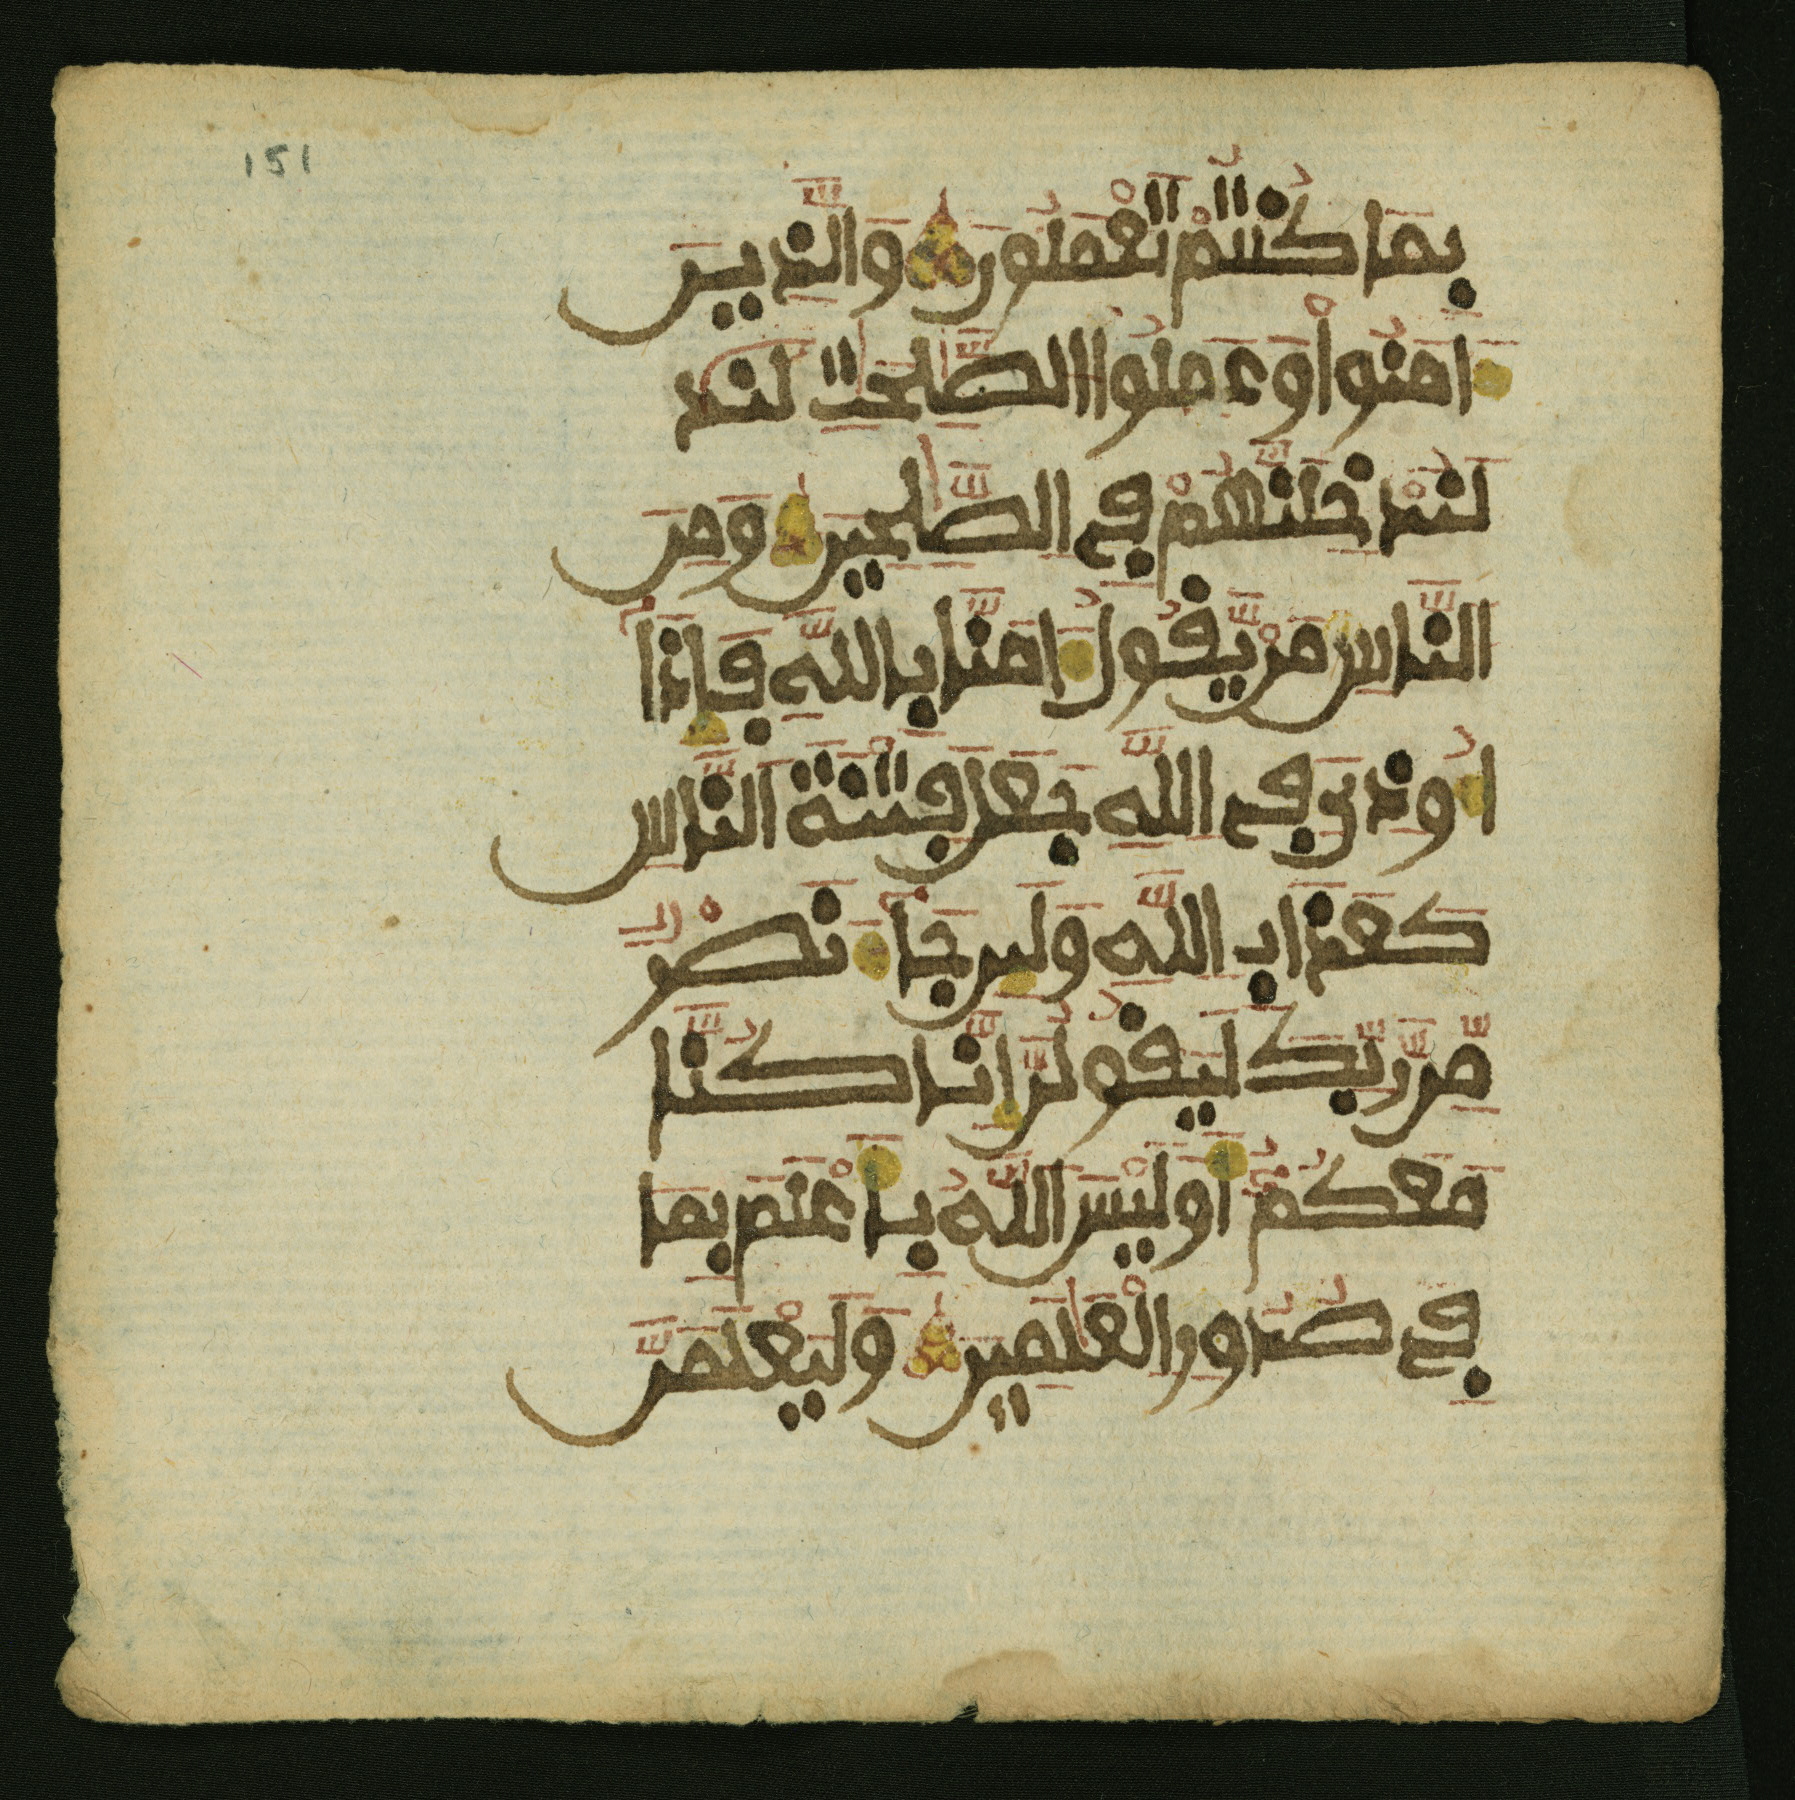 151
بِمَا كُنتُمْ تَعْمَلُونَ وَالَّذِينَ
ءَامَنُواْ وَعَمِلُواْ الصَّٰلِحَٰتِ لَنُد
لَنُدْخِلَنَّهُمْ فِي الصَّٰلِحِينَ وَمِنَ
النَّاسِ مَنْ يَّقُولُ ءَامَنَّا بِاللَّهِ فَإِذَا
أُوذِيَ فِي اللَّهِ جَعَلَ فِتْنَةَ النَّاسِ
كَعَذَابِ اللَّهِ وَلَئِن جَاءَ نَصْرٌ
مِّن رَّبِّكَ لَيَقُولُنَّ إِنَّا كُنَّا
مَعَكُمْ أَوَلَيْسَ اللَّهُ بِأَعْلَمَ بِمَا
فِي صُدُورِ الْعَٰلَمِينَ وَلَيَعْلَمَنَّ